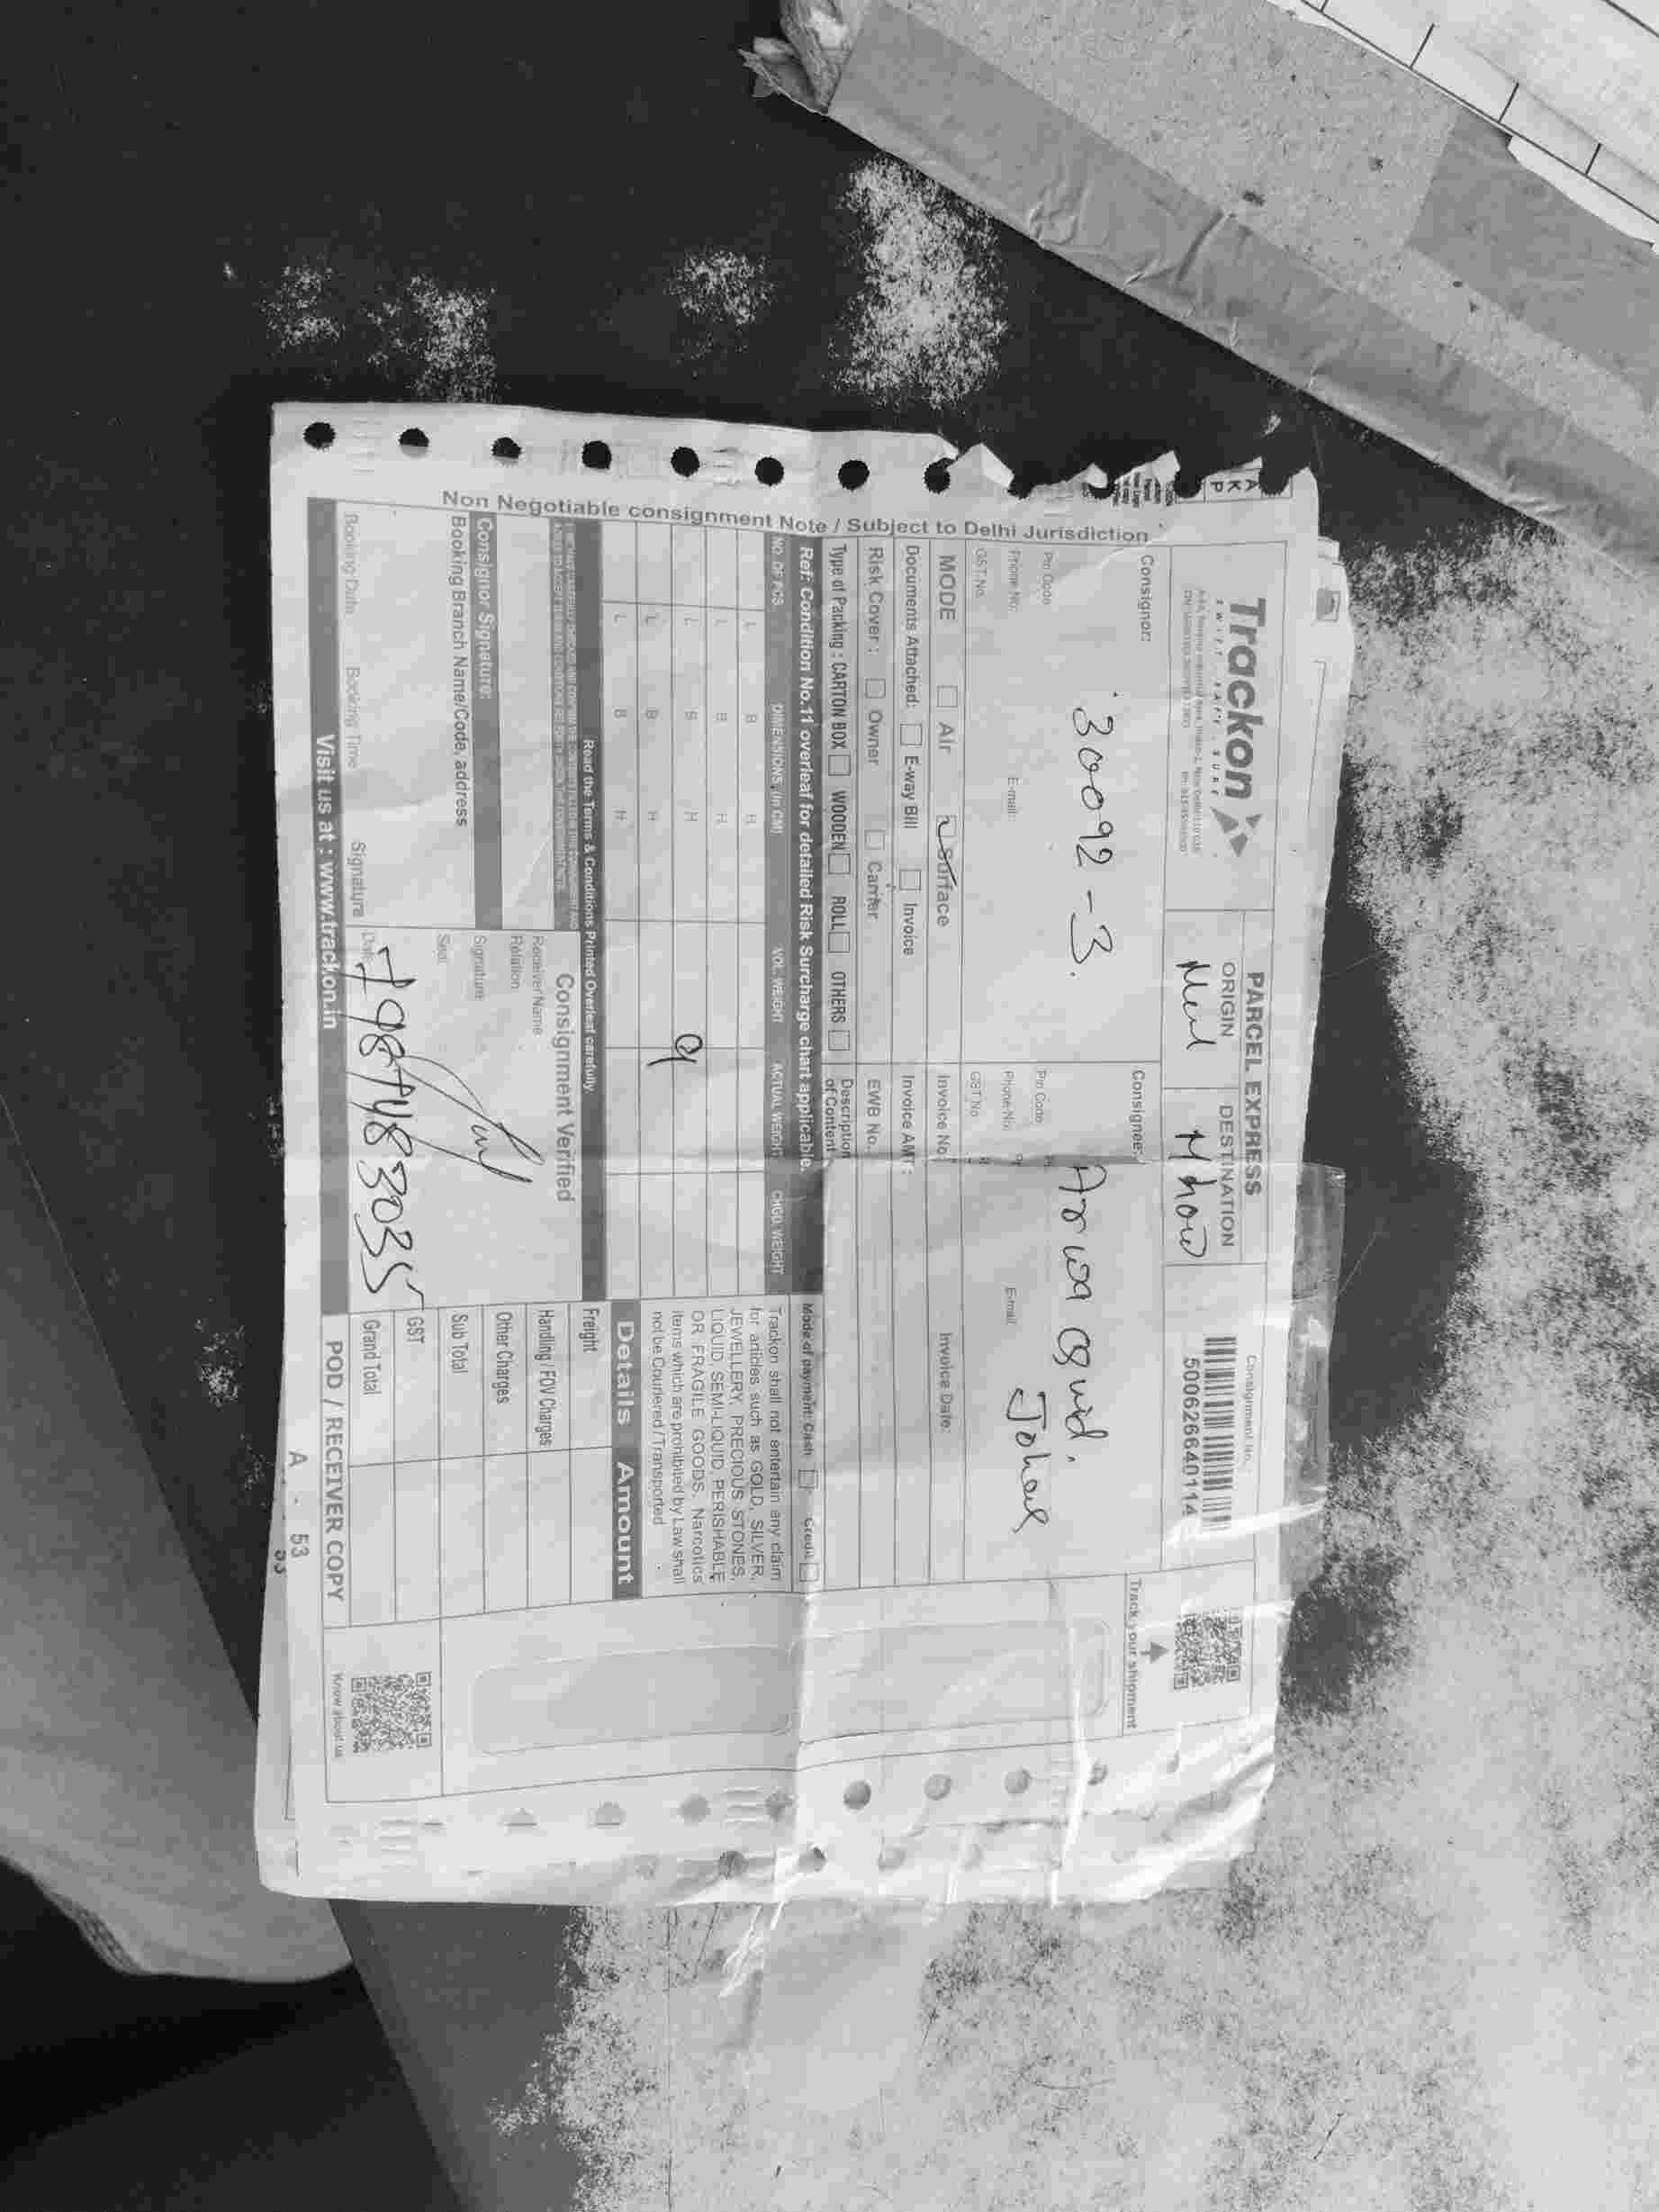 Trackon
SWIFT. SAFE. SURE
PARCEL EXPRESS
ORIGIN
DESTINATION
Mhow
Consignment No.
500626640114
Track your shipment
Non Negotiable consignment Note / Subject to Delhi Jurisdiction
Consignor:
30092-3.
Pin Code
Phone No.
E-mail:
GST No.
Consignee:
Johar
Pin Code
Phone No.
E-mail
GST No
MODE Air Surface
Invoice No.
Invoice Date:
Documents Attached: E-way Bill Invoice
Invoice AMT :
Risk Cover : Owner Carrier
EWB No.
Type of Packing : CARTON BOX WOODEN ROLL OTHERS
Description of Content
Ref: Condition No.11 overleaf for detailed Risk Surcharge chart applicable.
Mode of payment: Cash Credit
NO. OF PCS DIMENSIONS (in CM) VOL. WEIGHT ACTUAL WEIGHT CHGD. WEIGHT
L B H
L B H
L B H
9
L B H
L B H
Trackon shall not entertain any claim
for articles such as GOLD, SILVER,
JEWELLERY, PRECIOUS STONES,
LIQUID, SEMI-LIQUID, PERISHABLE
OR FRAGILE GOODS, Narcotics
items which are prohibited by Law shall
not be Couriered / Transported
Details Amount
Read the Terms & Conditions Printed Overleaf carefully.
Freight
Handling / FOV Charges
Other Charges
Sub Total
GST
Grand Total
Consignment Verified
Receiver Name
Relation
Signature
Seal
Date
Consignor Signature:
Booking Branch Name/Code, address
Booking Date Booking Time Signature
Visit us at : www.trackon.in
POD / RECEIVER COPY
Know about us
A - 53